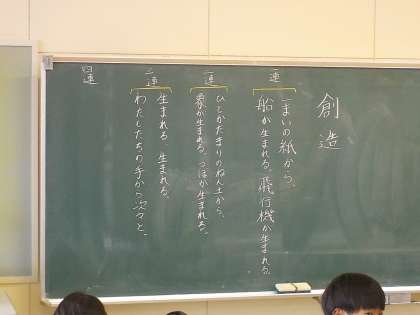 創造
一連
一まいの紙から、
船が生まれる。飛行機が生まれる。
二連
ひとかたまりのねん土から、
象が生まれる。つぼが生まれる。
三連
生まれる、生まれる。
わたしたちの手から次々と。
四連